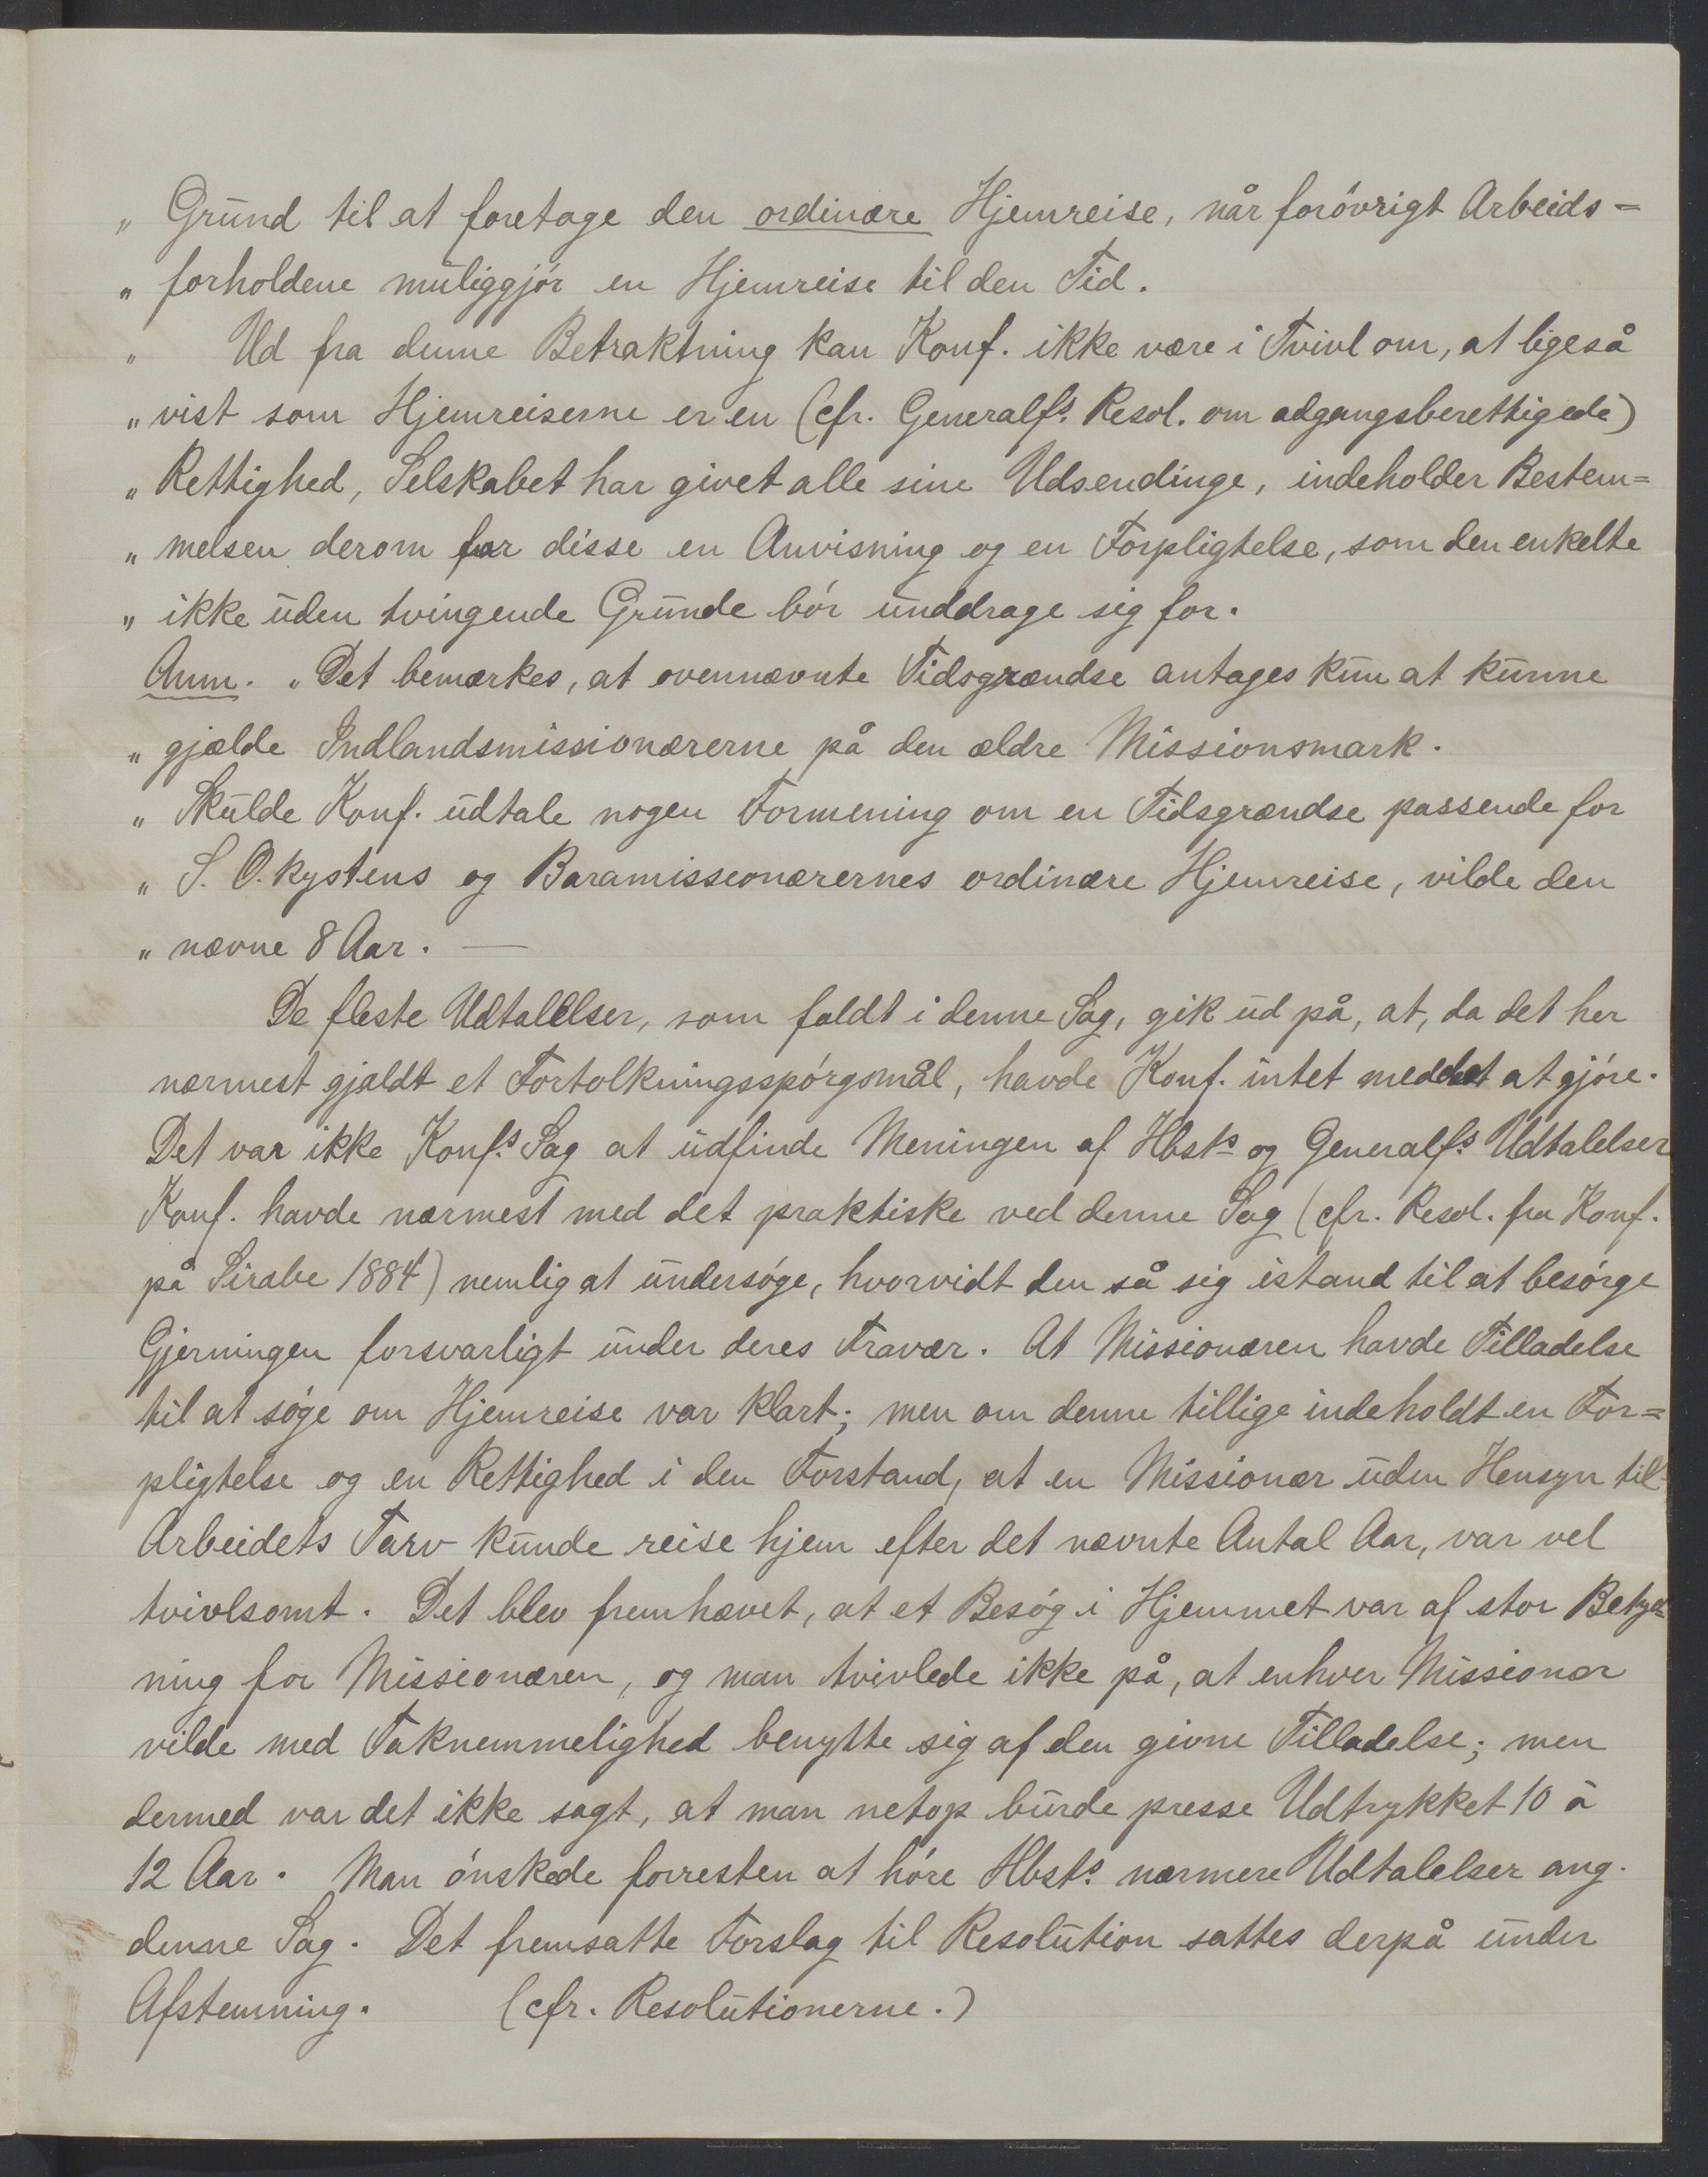 „ Grund til at foretage den ordinære Hjemreise, når forövrigt Arbeids=
„ forholdene muliggjör en Hjemreise til den Tid.
„ Ud fra denne Betraktning kan Konf. ikke være i Tvivl om, at ligeså
„ vist som Hjemreiserne er en (cfr. Generalfs. Resol. om adgangsberettigede)
„ Rettighed, Selskabet har givet alle sine Udsendinge, indeholder Bestem=
„ melsen derom for disse en Anvisning og en Forpligtelse, som den enkelte
„ ikke uden tvingende Grunde bör unddrage sig for.
Anm. „ Det bemærkes, at ovennævnte Tidsgrændse antages kun at kunne
„ gjælde Indlandsmissionærerne på den ældre Missionsmark.
„ Skulde Konf. udtale nogen Formening om en Tidsgrændse passende for
„ S. O. kystens og Baramissionærernes ordinære Hjemreise, vilde den
„ nævne 8 Aar. —
De fleste Udtalelser, som faldt i denne Sag, gik ud på, at, da det her
nærmest gjaldt et Fortolkningsspörgsmål, havde Konf. intet med det at gjöre.
Det var ikke Konfs. Sag at udfinde Meningen af Hbsts og Generalfs. Udtalelser
Konf. havde nærmest med det praktiske ved denne Sag (cfr. Resol. fra Konf.
på Sirabe 1884) nemlig at undersöge, hvorvidt den så sig istand til at besörge
Gjerningen forsvarligt under deres Fravær. At Missionæren havde Tilladelse
til at söge om Hjemreise var klart; men om denne tillige indeholdt en For=
pligtelse og en Rettighed i den Forstand, at en Missionær uden Hensyn til
Arbeidets Tarv kunde reise hjem efter det nævnte Antal Aar, var vel
tvivlsomt. Det blev fremhævet, at et Besög i Hjemmet var af stor Betyd=
ning for Missionæren, og man tvivlede ikke på, at enhver Missionær
vilde med Taknemmelighed benytte sig af den givne Tilladelse; men
dermed var det ikke sagt, at man netop burde presse Udtrykket 10 à
12 Aar. Man önskede forresten at höre Hbsts. nærmere Udtalelser ang.
denne Sag. Det fremsatte Forslag til Resolution sattes derpå under
Afstemning. (cfr. Resolutionerne.)